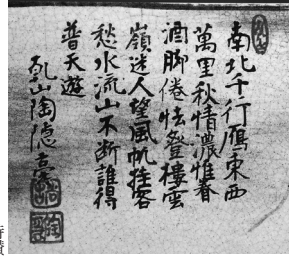 南北千行鴈東西
萬里秋情濃惟着
酒脚倦怯登樓雲
嶺迷人望風帆挂客
愁水流山不断誰得
普天遊
乹山陶隠